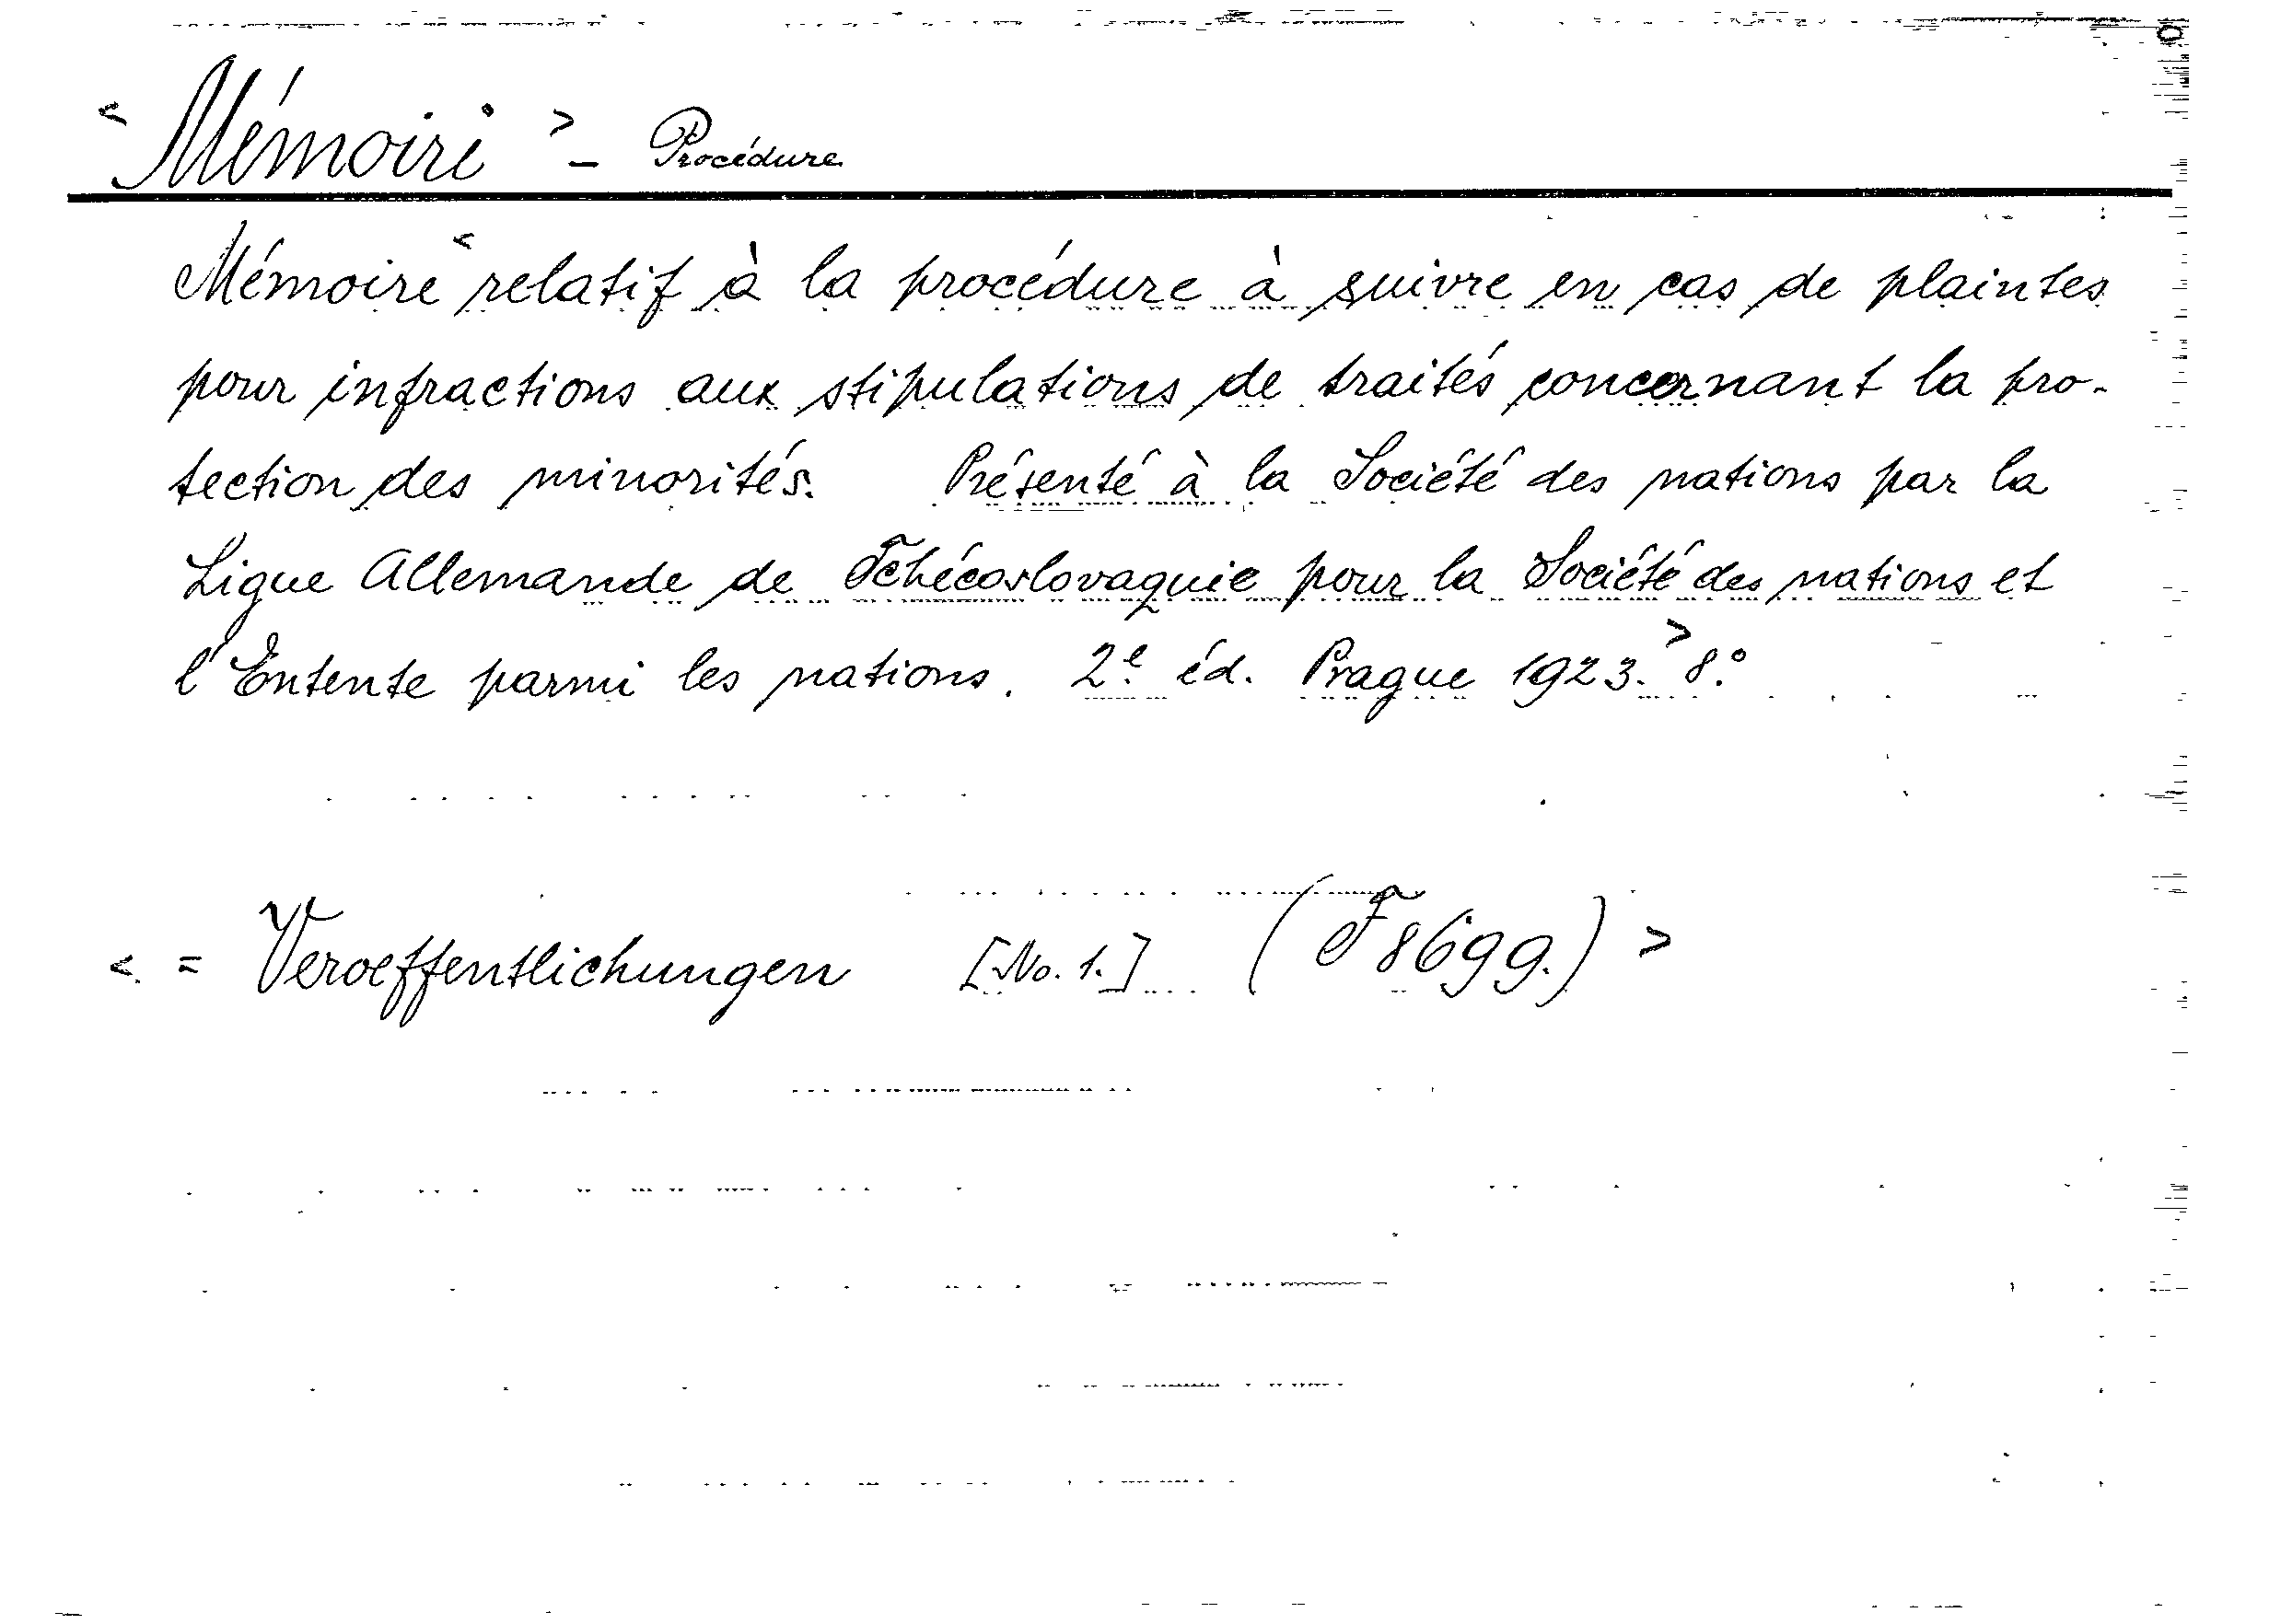 < Mémoire > - Procédure
Mémoire < relatif à la procédure à suivre en cas de plaintes
pour infractions aux stipulations de traités concernant la pro-
tection des minorités. Présenté à la Société des nations par la
Ligue Allemande de Tchécoslovaquie pour la Société des nations et
l'Entente parmi les nations. 2e éd. Prague 1923. > 8.°
< = Veroeffentlichungen [No. 1.] (F 8699.) >